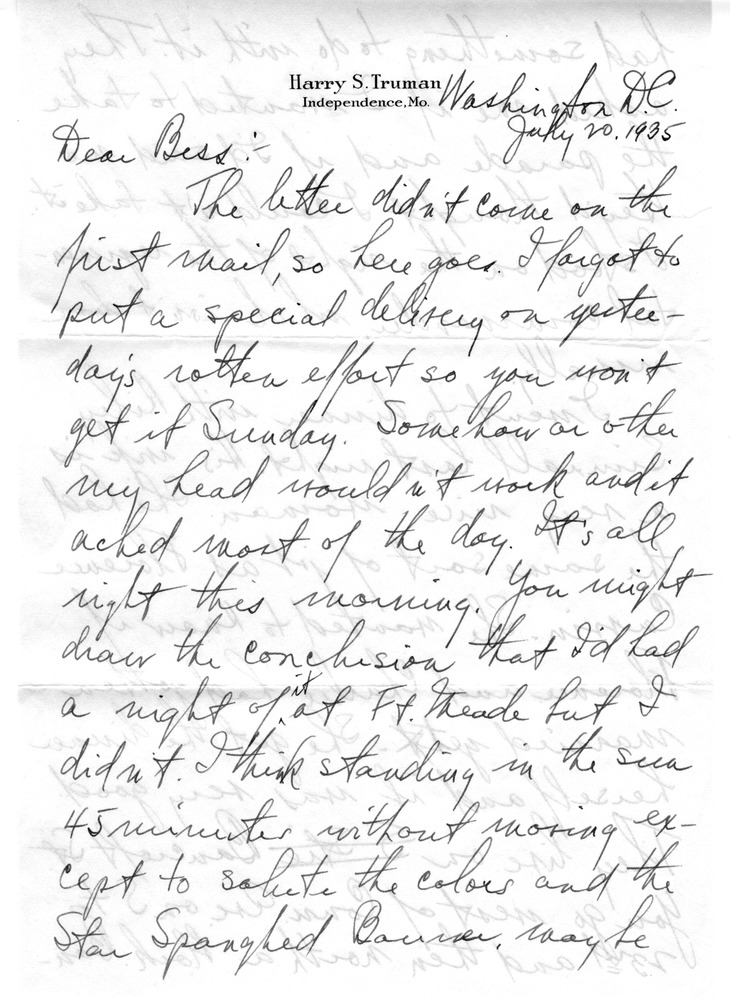 Harry S. Truman
Independence, Mo.
Washington D.C.
July 20, 1935
Dear Bess :-
The letter didn't come on the
first mail, so here goes. I forgot to
put a special delivery on yester-
day's rotten effort so you won't
get it Sunday. Somehow or other
my head wouldn't work and it
ached most of the day. It's all
right this morning. You might
draw the conclusion that I'd had
a night of it at Ft. Meade but I
didn't. I think standing in the sun
45 minutes without moving ex-
cept to salute the colors and the
Star Spangled Banner, maybe